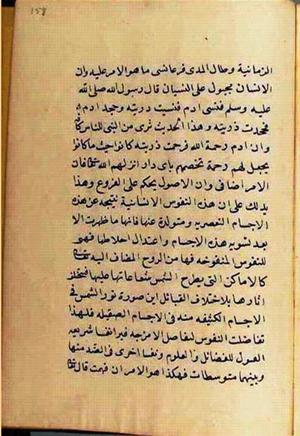 158
الزمانية وطال المدى فرعا نسى ما هو الامر عليه وان
الانسان مجبول على النسيان قال رسول الله صلى الله
عليه وسلم فنسى ادم فنسيت ذريته وجحد ادم
فجحدت ذريته وهذا الحديث
وان ادم رحمه الله فرحمت ذريته كانوا حيث ما كانوا
يجعل لهم رحمة تخصهم باى دار انزلهم الله
الامر اضافى وان الاصول يحكم على الفروع وهذا
يدلك على ان هذه النفوس الانسانية نتيجة عن هذه
الاجسام العنصرية ومتولدة عنها فانها ما ظهرت الا
بعد تسوية هذه الاجسام واعتدال اخلاطها فهى
للنفوس المنفوخة فيها من الروح المضاف اليه
كالاماكن التى يطرح الشمس شعاعاتها عليها فتختلف
اثارها باختلاف القوابل اين صورة نور الشمس فى
الاجسام الكثيفه منه فى الاجسام الصقيله فلهذا
تفاضلت النفوس لتفاضل الامزجه فترى نفسا سريعه
القبول للفضائل والعلوم ونفسا اخرى فى الضد منها
وبينهما متوسطات فهكذا هو الامر ان فهمت قال